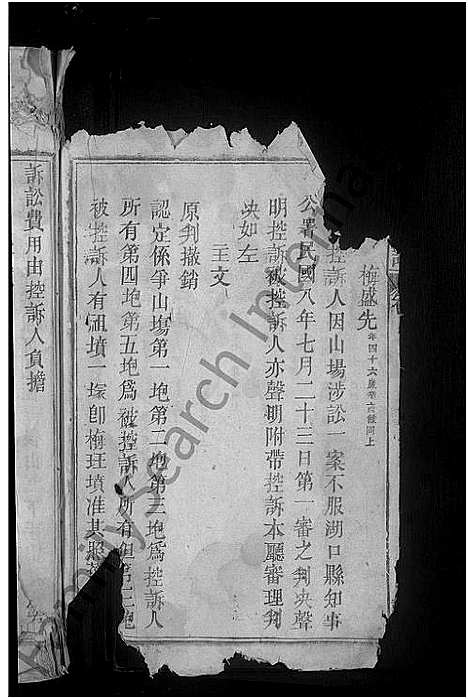 梅盛先年四十六歲餘同上
控訴人因山場涉訟一案不服湖口縣知事
公署民國八年七月二十三日第一審之判决聲
明控訴被控訴人亦聲明附帶控訴本廳審理判
决如左
主文
原判撤銷
認定係爭山塲第一垉第二垉第三垉爲控訴人
所有第四垉第五垉爲被控訴人所有但第二垉
被控訴人有祖墳一塚卽梅玨墳准其照
訴訟費用由控訴人負擔
FamilySearch International